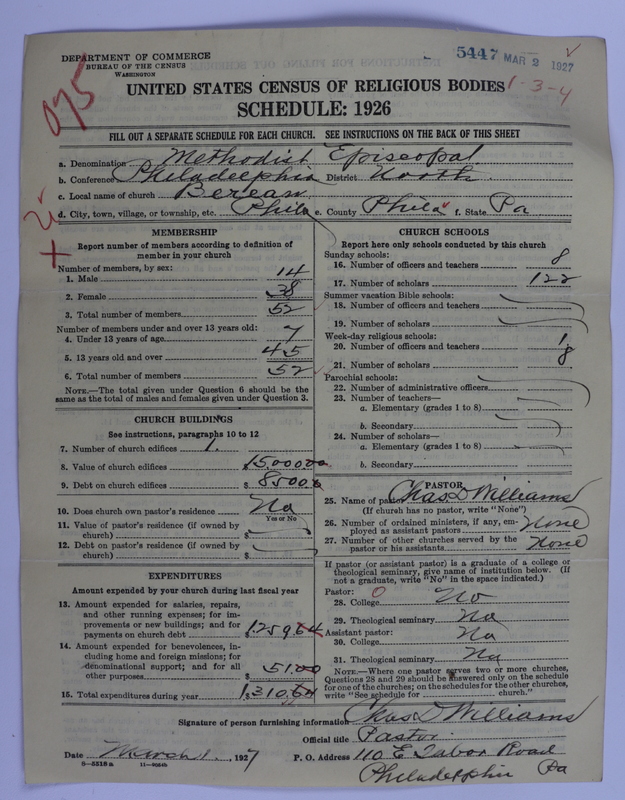 DEPARTMENT OF COMMERCE
BUREAU OF THE CENSUS
WASHINGTON
5447 MAR 2 1927
1-3-4
095
UNITED STATES CENSUS OF RELIGIOUS BODIES
SCHEDULE: 1926
FILL OUT A SEPARATE SCHEDULE FOR EACH CHURCH. SEE INSTRUCTIONS ON THE BACK OF THIS SHEET
a. Denomination Methodist Episcopal
b. Conference Philadelphia District North
c. Local name of church Berean
d. City, town, village, or township, etc. Phila e. County Phila f. State Pa
MEMBERSHIP
Report number of members according to definition of
member in your church
Number of members, by sex:
1. Male 14
2. Female 38
3. Total number of members 52
Number of members under and over 13 years old:
4. Under 13 years of age 7
5. 13 years old and over 45
6. Total number of members 52
NOTE.—The total given under Question 6 should be the
same as the total of males and females given under Question 3.
CHURCH BUILDINGS
See instructions, paragraphs 10 to 12
7. Number of church edifices 1.
8. Value of church edifices $ 15,000.00
9. Debt on church edifices $ 8500.
10. Does church own pastor's residence No
Yes or No
11. Value of pastor's residence (if owned by
church) $
12. Debt on pastor's residence (if owned by
church) $
EXPENDITURES
Amount expended by your church during last fiscal year
13. Amount expended for salaries, repairs,
and other running expenses; for im-
provements or new buildings; and for
payments on church debt $ 1,259.64
14. Amount expended for benevolences, in-
cluding home and foreign missions; for
denominational support; and for all
other purposes $ 51.00
15. Total expenditures during year $ 1,310.64
CHURCH SCHOOLS
Report here only schools conducted by this church
Sunday schools:
16. Number of officers and teachers 8
17. Number of scholars 122
Summer vacation Bible schools:
18. Number of officers and teachers
19. Number of scholars
Week-day religious schools:
20. Number of officers and teachers 1
21. Number of scholars 8
Parochial schools:
22. Number of administrative officers
23. Number of teachers—
a. Elementary (grades 1 to 8)
b. Secondary
24. Number of scholars—
a. Elementary (grades 1 to 8)
b. Secondary
PASTOR
25. Name of pastor Chas D Williams
(If church has no pastor, write "None")
26. Number of ordained ministers, if any, em-
ployed as assistant pastors none
27. Number of other churches served by the
pastor or his assistants none
If pastor (or assistant pastor) is a graduate of a college or
theological seminary, give name of institution below. (If
not a graduate, write "No" in the space indicated.)
Pastor:
28. College No
29. Theological seminary No
Assistant pastor:
30. College No
31. Theological seminary No
NOTE.—Where one pastor serves two or more churches,
Questions 28 and 29 should be answered only on the schedule
for one of the churches; on the schedules for the other churches,
write "See schedule for church."
Signature of person furnishing information Chas D Williams
Official title Pastor
Date March 1, 1927 P. O. Address 110 E Tabor Road
8—5318a 11—9054b Philadelphia Pa